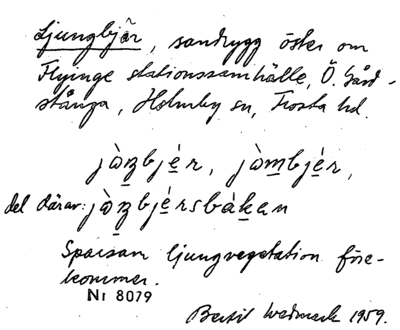 Ljungbjär, sandrygg öster om
Flyinge stationssamhälle, Ö. Gård-
stånga, Holmby sn, Frosta hd.
jòn̲bjé̲r, jòm̲bjé̲r,
del därav: jòn̲bjé̲rsbàk̲an
Sparsam ljungvegetation före-
kommer.
Nr 8079
Bertil Wedmark 1959.